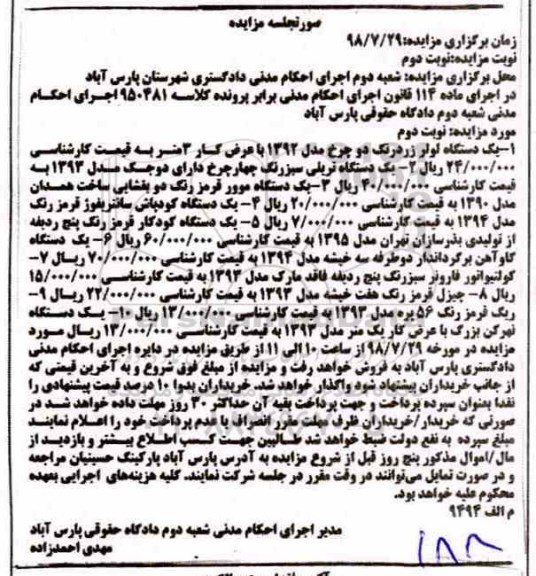 صورتجلسه مزایده
زمان برگزاری مزایده:۹۸/۷/۲۹
نوبت مزایده:نوبت دوم
محل برگزاری مزایده: شعبه دوم اجرای احکام مدنی دادگستری شهرستان پارس آباد
در اجرای ماده ۱۱۴ قانون اجرای احکام مدنی برابر پرونده کلاسه ۹۵۰۴۸۱ اجرای احکام
مدنی شعبه دوم دادگاه حقوقی پارس آباد
مورد مزایده: نوبت دوم
۱-یک دستگاه لولر زردرنگ دو چرخ مدل ۱۳۹۲ با عرض کار ۳متر به قیمت کارشناسی
۲۴/۰۰۰/۰۰۰ ریال ۲- یک دستگاه تریلی سبزرنگ چهارچرخ دارای دوجک مدل ۱۳۹۳ به
قیمت کارشناسی ۴۰/۰۰۰/۰۰۰ ریال ۳-یک دستگاه موور قرمز رنگ دو بشقابی ساخت همدان
مدل ۱۳۹۰ به قیمت کارشناسی ۲۰/۰۰۰/۰۰۰ ریال ۴- یک دستگاه کودپاش سانتریفوژ قرمز رنگ
مدل ۱۳۹۴ به قیمت کارشناسی ۷/۰۰۰/۰۰۰ ریال ۵- یک دستگاه کودکار قرمز رنگ پنج ردیفه
از تولیدی بذرسازان تهران مدل ۱۳۹۵ به قیمت کارشناسی ۶۰/۰۰۰/۰۰۰ ریال ۶- یک دستگاه
گاوآهن برگرداندار دوطرفه سه خیشه مدل ۱۳۹۴ به قیمت کارشناسی ۷۰/۰۰۰/۰۰۰ ریال ۷-
کولتیواتور فاروئر سبزرنگ پنج ردیفه فاقد مارک مدل ۱۳۹۳ به قیمت کارشناسی ۱۵/۰۰۰/۰۰۰
ریال ۸- چیزل قرمز رنگ هفت خیشه مدل ۱۳۹۳ به قیمت کارشناسی ۲۲/۰۰۰/۰۰۰ ریال ۹-
ریگ قرمز رنگ ۵۶ پره مدل ۱۳۹۳ به قیمت کارشناسی ۱۲/۰۰۰/۰۰۰ ریال ۱۰- یک دستگاه
نهرکن بزرگ با عرض کار یک متر مدل ۱۳۹۳ به قیمت کارشناسی ۱۳/۰۰۰/۰۰۰ ریال مورد
مزایده در مورخه ۹۸/۷/۲۹ از ساعت ۱۰ الی ۱۱ از طریق مزایده در دایره اجرای احکام مدنی
دادگستری پارس آباد به فروش خواهد رفت و مزایده از مبلغ فوق شروع و به آخرین قیمتی که
از جانب خریداران پیشنهاد شود واگذار خواهد شد. خریداران بدوا ۱۰ درصد قیمت پیشنهادی را
نقدا بعنوان سپرده پرداخت و جهت پرداخت بقیه آن حداکثر ۳۰ روز مهلت داده خواهد شد در
صورتی که خریدار/خریداران ظرف مهلت مقرر انصراف یا عدم پرداخت خود را اعلام نمایند
مبلغ سپرده به نفع دولت ضبط خواهد شد طالبین جهت کسب اطلاع بیشتر و بازدید از
مال/اموال مذکور پنج روز قبل از شروع مزایده به آدرس پارس آباد پارکینگ حسینیان مراجعه
و در صورت تمایل می‌توانند در وقت مقرر در جلسه شرکت نمایند. کلیه هزینه‌های اجرایی بعهده
محکوم علیه خواهد بود.
م الف ۹۴۹۴
مدیر اجرای احکام مدنی شعبه دوم دادگاه حقوقی پارس آباد
مهدی احمدزاده
۱۸۸